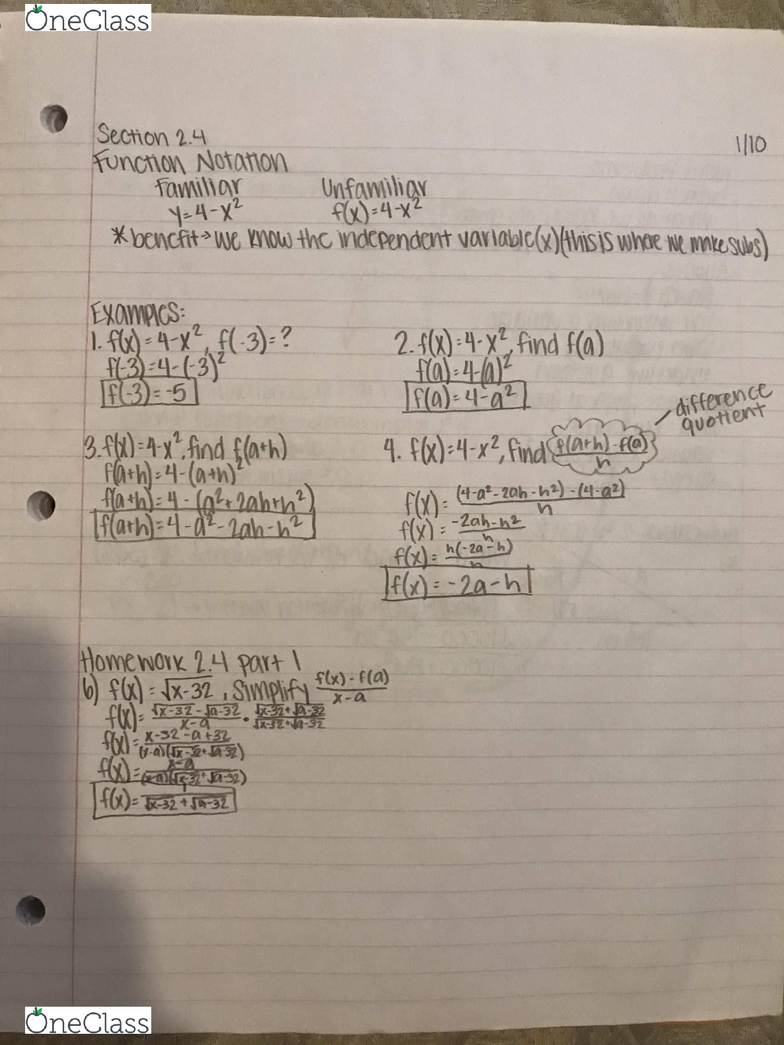 OneClass
Section 2.4
1/10
Function Notation
Familiar
Unfamiliar
y=4-x²
f(x)=4-x²
*benefit→we know the independent variable(x)(this is where we make subs)
Examples:
1. f(x)=4-x², f(-3)=?
f(-3)=4-(-3)²
f(-3)=-5
2. f(x)=4-x², find f(a)
f(a)=4-(a)²
f(a)=4-a²
3. f(x)=4-x², find f(a+h)
f(a+h)=4-(a+h)²
f(a+h)=4-(a²+2ah+h²)
f(a+h)=4-a²-2ah-h²
difference
quotient
4. f(x)=4-x², find f(a+h)-f(a)/h
f(x)=(4-a²-2ah-h²)-(4-a²)/h
f(x)=-2ah-h²/h
f(x)=h(-2a-h)/h
f(x)=-2a-h
Homework 2.4 part 1
6) f(x)=√x-32, simplify f(x)-f(a)/x-a
f(x)=√x-32-√a-32/x-a • √x-32+√a-32/√x-32+√a-32
f(x)=x-32-a+32/(x-a)(√x-32+√a-32)
f(x)=x-a/(x-a)(√x-32+√a-32)
f(x)=1/√x-32+√a-32
OneClass